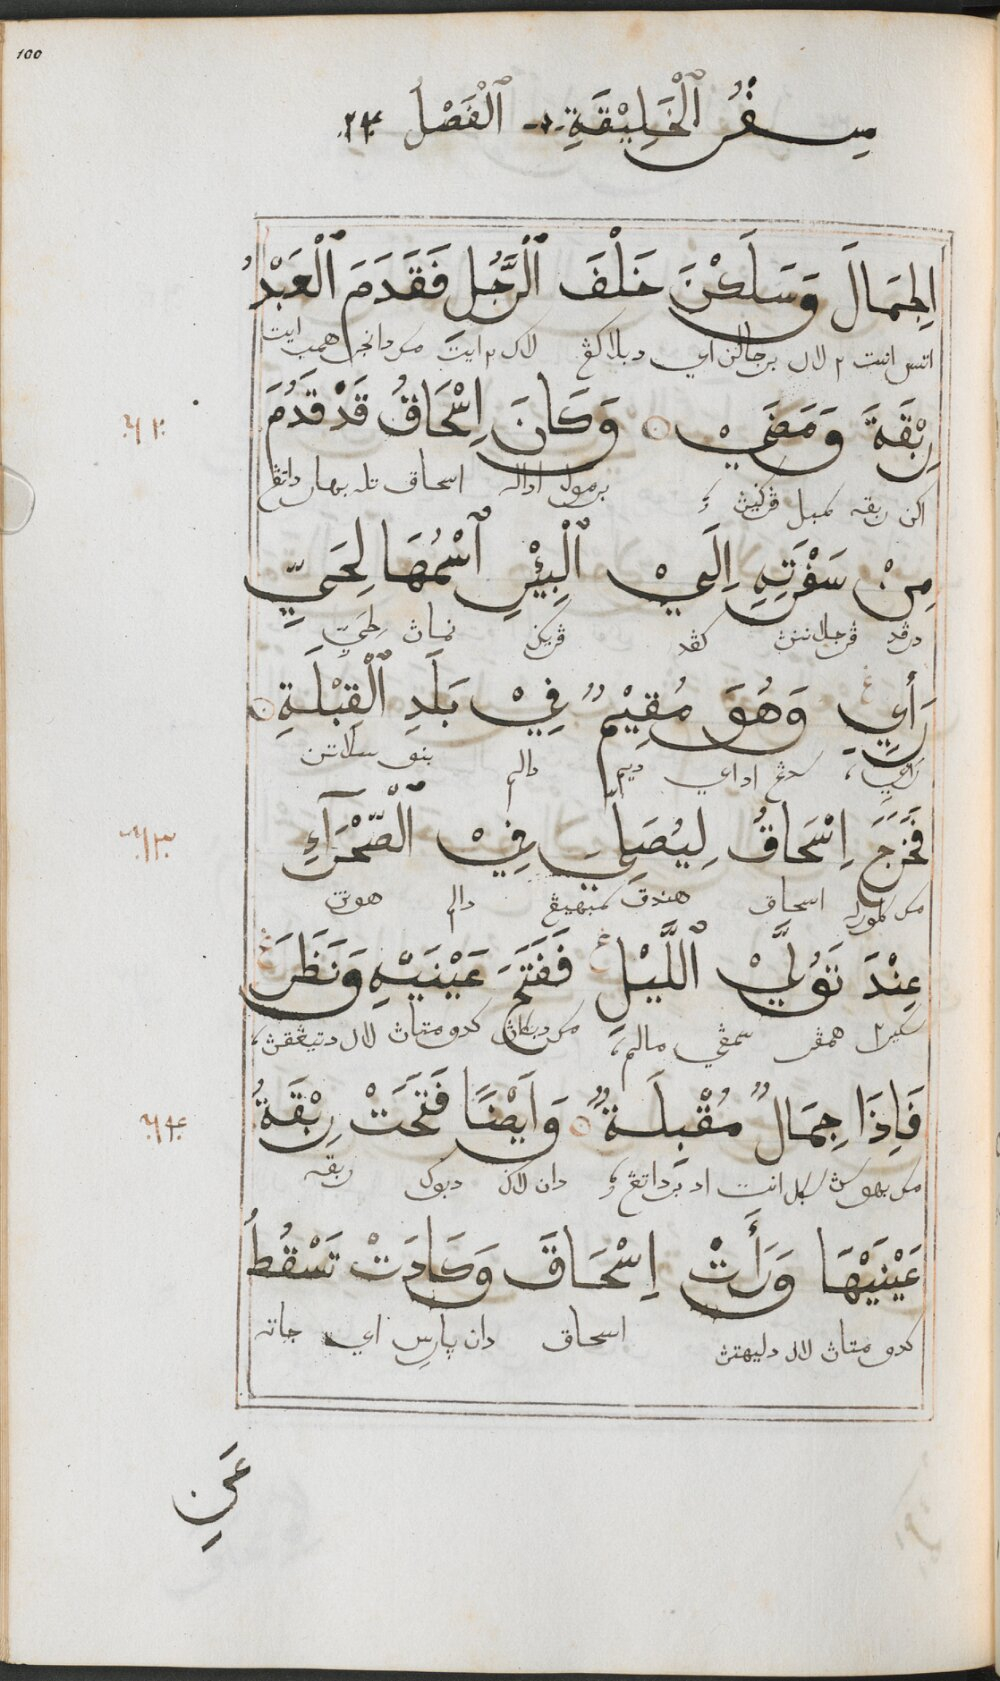 100
سِفْرُ ٱلْخَلِيْقَةِ ٱلْفَصْلُ ٢٤
اِلجِمَالَ وَسَلَكْنَ خَلْفَ ٱلرَّجُلِ فَقَدَمَ ٱلْعَبْدُ
اتس انت ٢ لال برجالن اي دبلاکڠ لاک ٢ ايت مک همب ايت
رِبْقَةَ وَمَضَيْ وَكَانَ اِسْحَاقُ قَدْ قَدُمَ
٦٢
اکن ربقه کمبل برمول اداله اسحاق تله بهار داتڠ
مِنْ سَفْرَتِهِ اِلَيْ ٱلْبِئْرِ ٱسْمُهَا لِحَيِّ
درڤد ڤرجلاننڽ کڤد ڤريݢ نماڽ لحيّ
رَأَيِ وَهُوَ مُقِيْمٌ فِيْ بَلَدِ ٱلْقِبْلَةِ
راي سدڠ اداي ديم دالم بنو سلاتن
فَخَرَجَ اِسْحَاقُ لِيُصَلِّيَ فِيْ ٱلْصَّحْرَآءِ
٦٣
مک کلورله اسحاق هندق سمبهيڠ دالم هوتن
عِنْدَ تَوَلِّيْ ٱللَّيْلِ فَفَتَحَ عَيْنَيْهِ وَنَظَرَ
همڤر سمڤي مالم مک دبکاڽ کدو متاڽ لال دتيڠقڽ
فَاِذَا جِمَالٌ مُقْبِلَةٌ وَاَيْضًا فَتَحَتْ رِبْقَةُ
٦٤
مک انت اد برداتڠ دان لاݢ دبوک ربقه
عَيْنَيْهَا وَرَأَتْ اِسْحَاقَ وَكَادَتْ تَسْقُطُ
کدو متاڽ لال دليهتڽ اسحاق دان ڽارس اي جاته
عَنِ